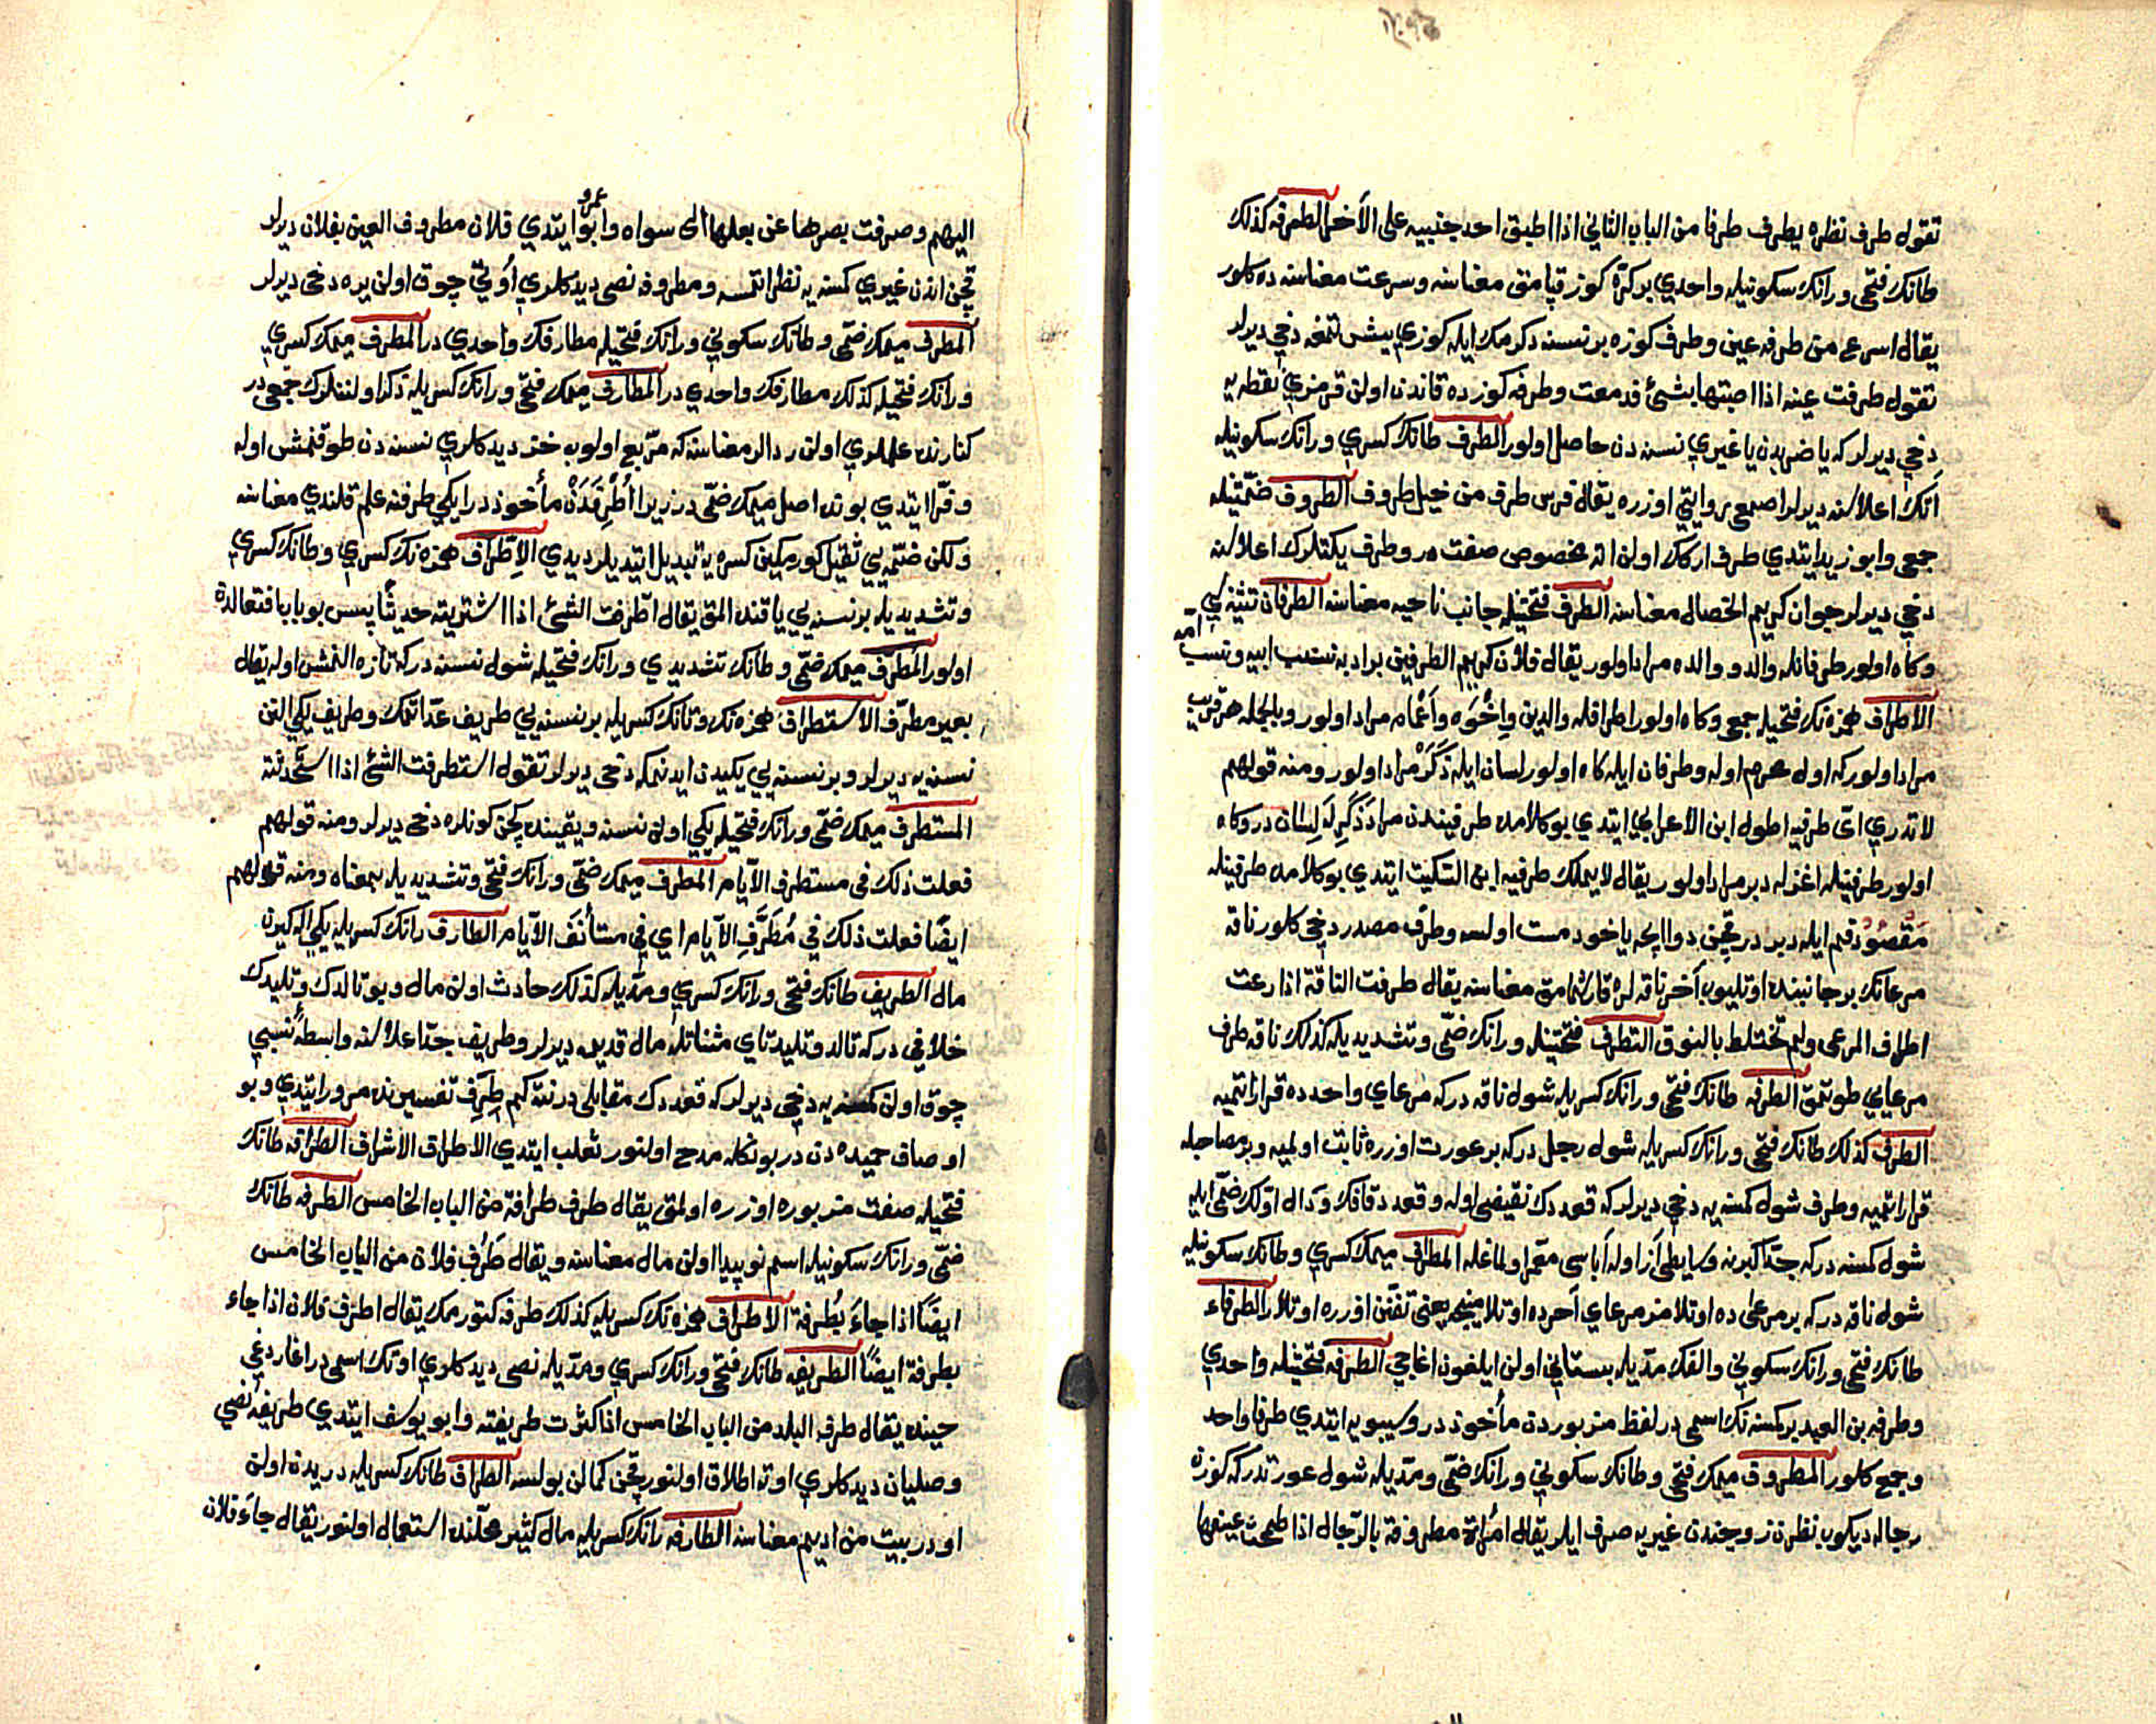 تقول طرف نظره يطرف طرفا من الباب الثاني اذا اطبق احد جفنيه على الآخر الطرفه كذلك
طانك فتحى ورانك سكونيله واحدي بر كرّه كوز قپامق معناسنه وسرعت معناسنه ده كلور
يقال اسرع من طرفه عين وطرف كوزه بر نسنه دكرمك ايله كوزي يشلتمغه دخي ديرلر
تقول طرفت عينه اذا اصبتها بشئ فدمعت وطرفه كوزده قاندن اولن قرمزي نقطه يه
دخي ديرلر كه يا ضربدن يا غيري نسنه دن حاصل اولور الطرف طانك كسري ورانك سكونيله
آتك اعلاسنه ديرلر اصمعي روايتي اوزره يقال فرس طرف من خيل طروف الطروف ضمّتيله
جمعى وابو زيد ايتدي طرف اركك اولن اته مخصوص صفت در وطرف يكتلرك اعلاسنه
دخي ديرلر جوان كريم الخصال معناسنه الطرف فتحتيله جانب ناحيه معناسنه الطرفان تثنيه سي
وكاه اولور طرفانله والد و والده مراد اولور يقال فلان كريم الطرفين يراد به نسب ابيه ونسب امه
الاطراف همزه نك فتحيله جمعى وكاه اولور اطرافله والدين واِخْوَه واَعْمام مراد اولور وبالجمله هر قريب
مراد اولور كه اوله محرم اوله وطرفان ايله كاه اولور لسان ايله ذَكَرْ مراد اولور ومنه قولهم
لا تدري اىّ طرفيه اطول ابن الاعرابي ايتدي بو كلامده طرفيندن مراد ذَكَرله لِسان در وكاه
اولور طرفينله اغزله دبر مراد اولور يقال لا يملك طرفيه ابن السّكيت ايتدي بو كلامده طرفينله
مَقْصُودْ فم ايله دبر در قچن دوا ايچه ياخود مست اولسه وطرف مصدر دخي كلور ناقه
مرعانك بر جانبنده اوتليوب آخر ناقه لره قارشمامق معناسنه يقال طرفت الناقة اذا رعت
اطراف المرعى ولم تختلط بالنوق التطرف فتحتيله ورانك ضمّى وتشديديله كذلك ناقه طرف
مرعايي طوتمق الطرفه طانك فتحى ورانك كسريله شول ناقه دركه مرعاي واحدده قرار ايتميه
الطرف كذلك طانك فتحى ورانك كسريله شول رجل دركه بر عورت اوزره ثابت اولميه وبر مصاحبله
قرار ايتميه وطرف شول كمسنه يه دخي ديرلر كه قعددك نقيضى اوله وقعدد قافك ودال اوّلك ضمّى ايله
شول كمسنه دركه جدّ اكبرينه وسايطى آز اوله آباسى معمّر اولمغله المطراف ميمك كسري وطانك سكونيله
شول ناقه دركه بر مرعى ده اوتلامز مرعاي آخرده اوتلامينجه يعنى تفنّن اوزره اوتلار الطرفاء
طانك فتحى ورانك سكوني والفك مدّيله بستاني اولن ايلغون اغاجي الطرفه فتحتيله واحدي
وطرفه بن العبد بر كمسنه نك اسمى در لفظ مزبوردن مأخوذ در وسيبويه ايتدي طرفا واحد
وجمع كلور المطروف ميمك فتحى وطانك سكوني ورانك ضمّى ومدّيله شول عورتدر كه كوزه
رجاله ديكوب نظرن زوجندن غيريه صرف ايلر يقال امرأة مطروفة بالرّجال اذا طمحت عينها
اليهم وصرفت بصرها عن بعلها الى سواه وابو عمرو ايتدي فلان مطروف العين بفلان ديرلر
قچن اندن غيري كمسنه يه نظر ايتمسه ومطروفه نصى ديدكلري اُوتي چوق اولن يره دخى ديرلر
المطرف ميمك ضمّى وطانك سكوني ورانك فتحيله مطارفك واحدي در المطرف ميمك كسري
ورانك فتحيله كذلك مطارفك واحدي در المطارف ميمك فتحى ورانك كسريله ذكر اولنانلرك جمعى در
كنارنده علملري اولن ردالر معناسنه كه مربّع اولوب خز ديدكلري نسنه دن طوقنمش اوله
وفرّا ايتدي بونده اصل ميمك ضمّى در زيرا اُطْرِفَ دَنْ مأخوذ در ايكي طرفنه علم قلندي معناسنه
ولكن ضمّه يي ثقيل كورمكين كسره يه تبديل ايتديلر ديدي الاِطّراف همزه نك كسري وطانك كسري
وتشديديله بر نسنه يي ياقنده المق يقال اطّرفت الشئ اذا اشتريته حديثًا پس بو باب افتعالدن
اولور المطرّف ميمك ضمّى وطانك تشديدي ورانك فتحيله شول نسنه دركه تازه النمش اوله يقال
بعير مطرّف الاستطراف همزه نك وتانك كسريله بر نسنه يي طريف عدّ ايتمك وطريف يكي النن
نسنه يه ديرلر وبر نسنه يي يكيدن ايدنمكه دخى ديرلر تقول استطرفت الشئ اذا استحدثته
المستطرف ميمك ضمّى ورانك فتحيله يكي اولن نسنه ويقينده كچن كونلره دخى ديرلر ومنه قولهم
فعلت ذلك فى مستطرف الايّام المطرف ميمك ضمّى ورانك فتحى وتشديديله بمعناه ومنه قولهم
ايضًا فعلت ذلك في مُطَّرَفِ الايّام اي في مستأنَف الايّام الطارف رانك كسريله يكي اله كيرن
مال الطريف طانك فتحى ورانك كسري ومدّيله كذلك حادث اولن مال وبو تالدك وتليدك
خلافي دركه تالد وتليد تاي مثناتله مال قديمه ديرلر وطريف جدّ اعلاسنه واسطهٔ نسبي
چوق اولن كمسنه يه دخي ديرلر كه قعددك مقابلى در نته كم طِرَف تفسيرنده مرور ايتدي وبو
اوصاف حميده دن در بونكله مدح اولنور ثعلب ايتدي الاطراف الاشراف الطرافه طانك
فتحيله صفت مزبوره اوزره اولمق يقال طرف طرافة من الباب الخامس الطرفه طانك
ضمّى ورانك سكونيله اسم نوپيدا اولن مال معناسنه ويقال طَرُف فلان من الباب الخامس
ايضًا اذا جاءَ بُطرفة الاطراف همزه نك كسريله كذلك طرفه كتورمك يقال اطرف فلان اذا جاء
بطرفة ايضًا الطريفه طانك فتحى ورانك كسري ومدّيله نصى ديدكلري اوتك اسمى در اغاردغي
حينده يقال طرف البلد من الباب الخامس اذا كثرت طريفته وابو يوسف ايتدي طريفه نصي
وصليان ديدكلري اوته اطلاق اولنور قچن كمالن بولسه الطراف طانك كسريله دريدن اولن
اودر بيت من اديم معناسنه الطارفه رانك كسريله مال كثير محلّنده استعمال اولنور يقال جاءَ فلان